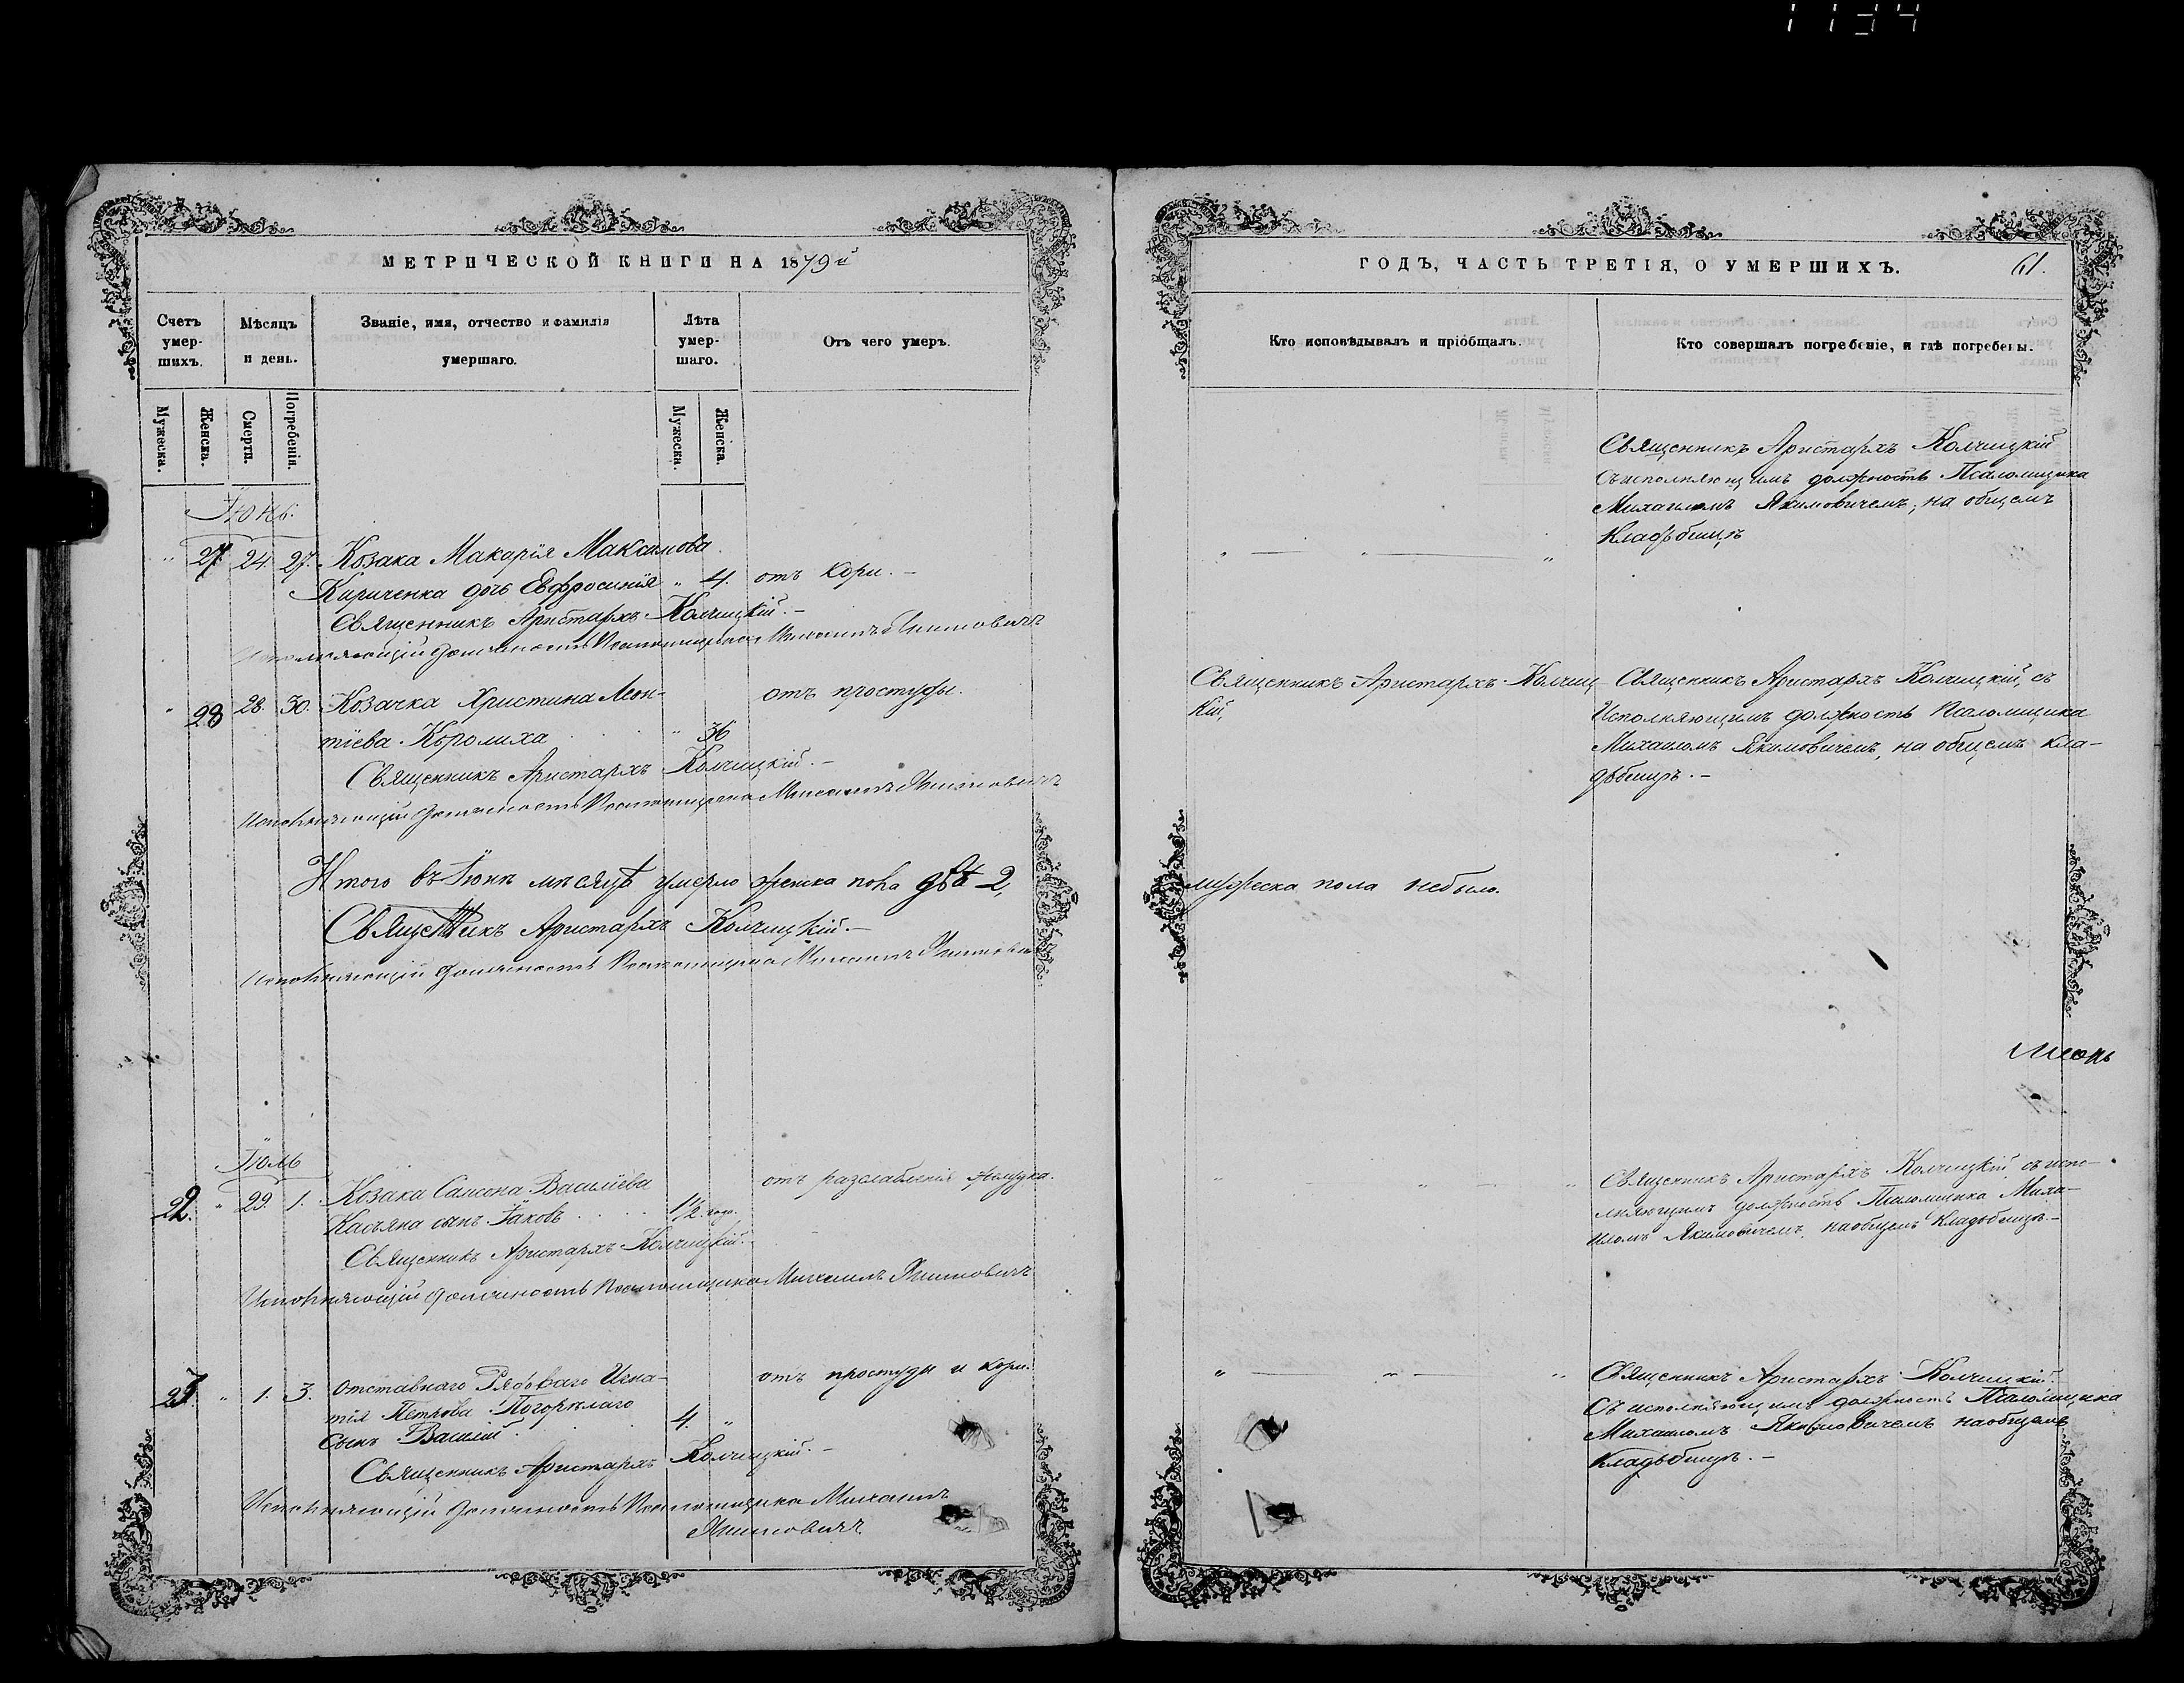 1134
МЕТРИЧЕСКОЙ КНИГИ НА 1879й
Счетъ умер-шихъ.
Мѣсяцъ и день.
Званіе, имя, отчество и фамилія умершаго.
Лѣта умер-шаго.
Отъ чего умеръ.
Мужеска.
Женска.
Смерти.
Погребенія.
Мужеска.
Женска.
Іюнь.
27 24. 27. Козака Макарія Максимова
Кириченка дочь Евфросинія " 4. отъ кори. –
Священникъ Аристархъ Колчицкій. –
Исполняющій должность Псаломщика Михаилъ Якимовичъ
28 28. 30. Козачка Христина Леон- отъ простуды.
тіева Королиха " 36
Священникъ Аристархъ Колчицкій. –
Исполняющій должность Псаломщика Михаилъ Якимовичъ
Итого въ Іюнѣ мѣсяцѣ умерло женска пола двѣ 2,
Священникъ Аристархъ Колчицкій. –
Исполняющій должность Псаломщика Михаилъ Якимовичъ
Іюль
22. " 29. 1. Козака Самсона Василіева отъ разслабленія желудка.
Касьяна сынъ Іаковъ 1½ года.
Священникъ Аристархъ Колчицкій.
Исполняющій должность Псаломщика Михаилъ Якимовичъ
23. " 1. 3. Отставнаго Рядоваго Игна- отъ простуды и кори.
тія Петрова Погорѣлаго
сынъ Василій 4. "
Священникъ Аристархъ Колчицкій. –
Исполняющій должность Псаломщика Михаилъ
Якимовичъ
ГОДЪ, ЧАСТЬ ТРЕТІЯ, О УМЕРШИХЪ. 61.
Кто исповѣдывалъ и пріобщалъ.
Кто совершалъ погребеніе, и гдѣ погребены.
Священникъ Аристархъ Колчицкій
съ исполняющимъ должность Псаломщика
Михаиломъ Якимовичемъ, на общемъ
кладбищѣ
Священникъ Аристархъ Колчиц-
кій,
Священникъ Аристархъ Колчицкій, съ
Исполняющимъ должность Псаломщика
Михаиломъ Якимовичемъ, на общемъ кла-
дбищѣ. –
мужеска пола небыло.
Священникъ Аристархъ Колчицкій съ испо-
лняющимъ должность Псаломщика Миха-
иломъ Якимовичемъ, на общемъ кладбищѣ. –
Священникъ Аристархъ Колчицкій.
Съ исполняющимъ должность Псаломщика
Михаиломъ Якимовичемъ на общемъ
кладбищѣ. –